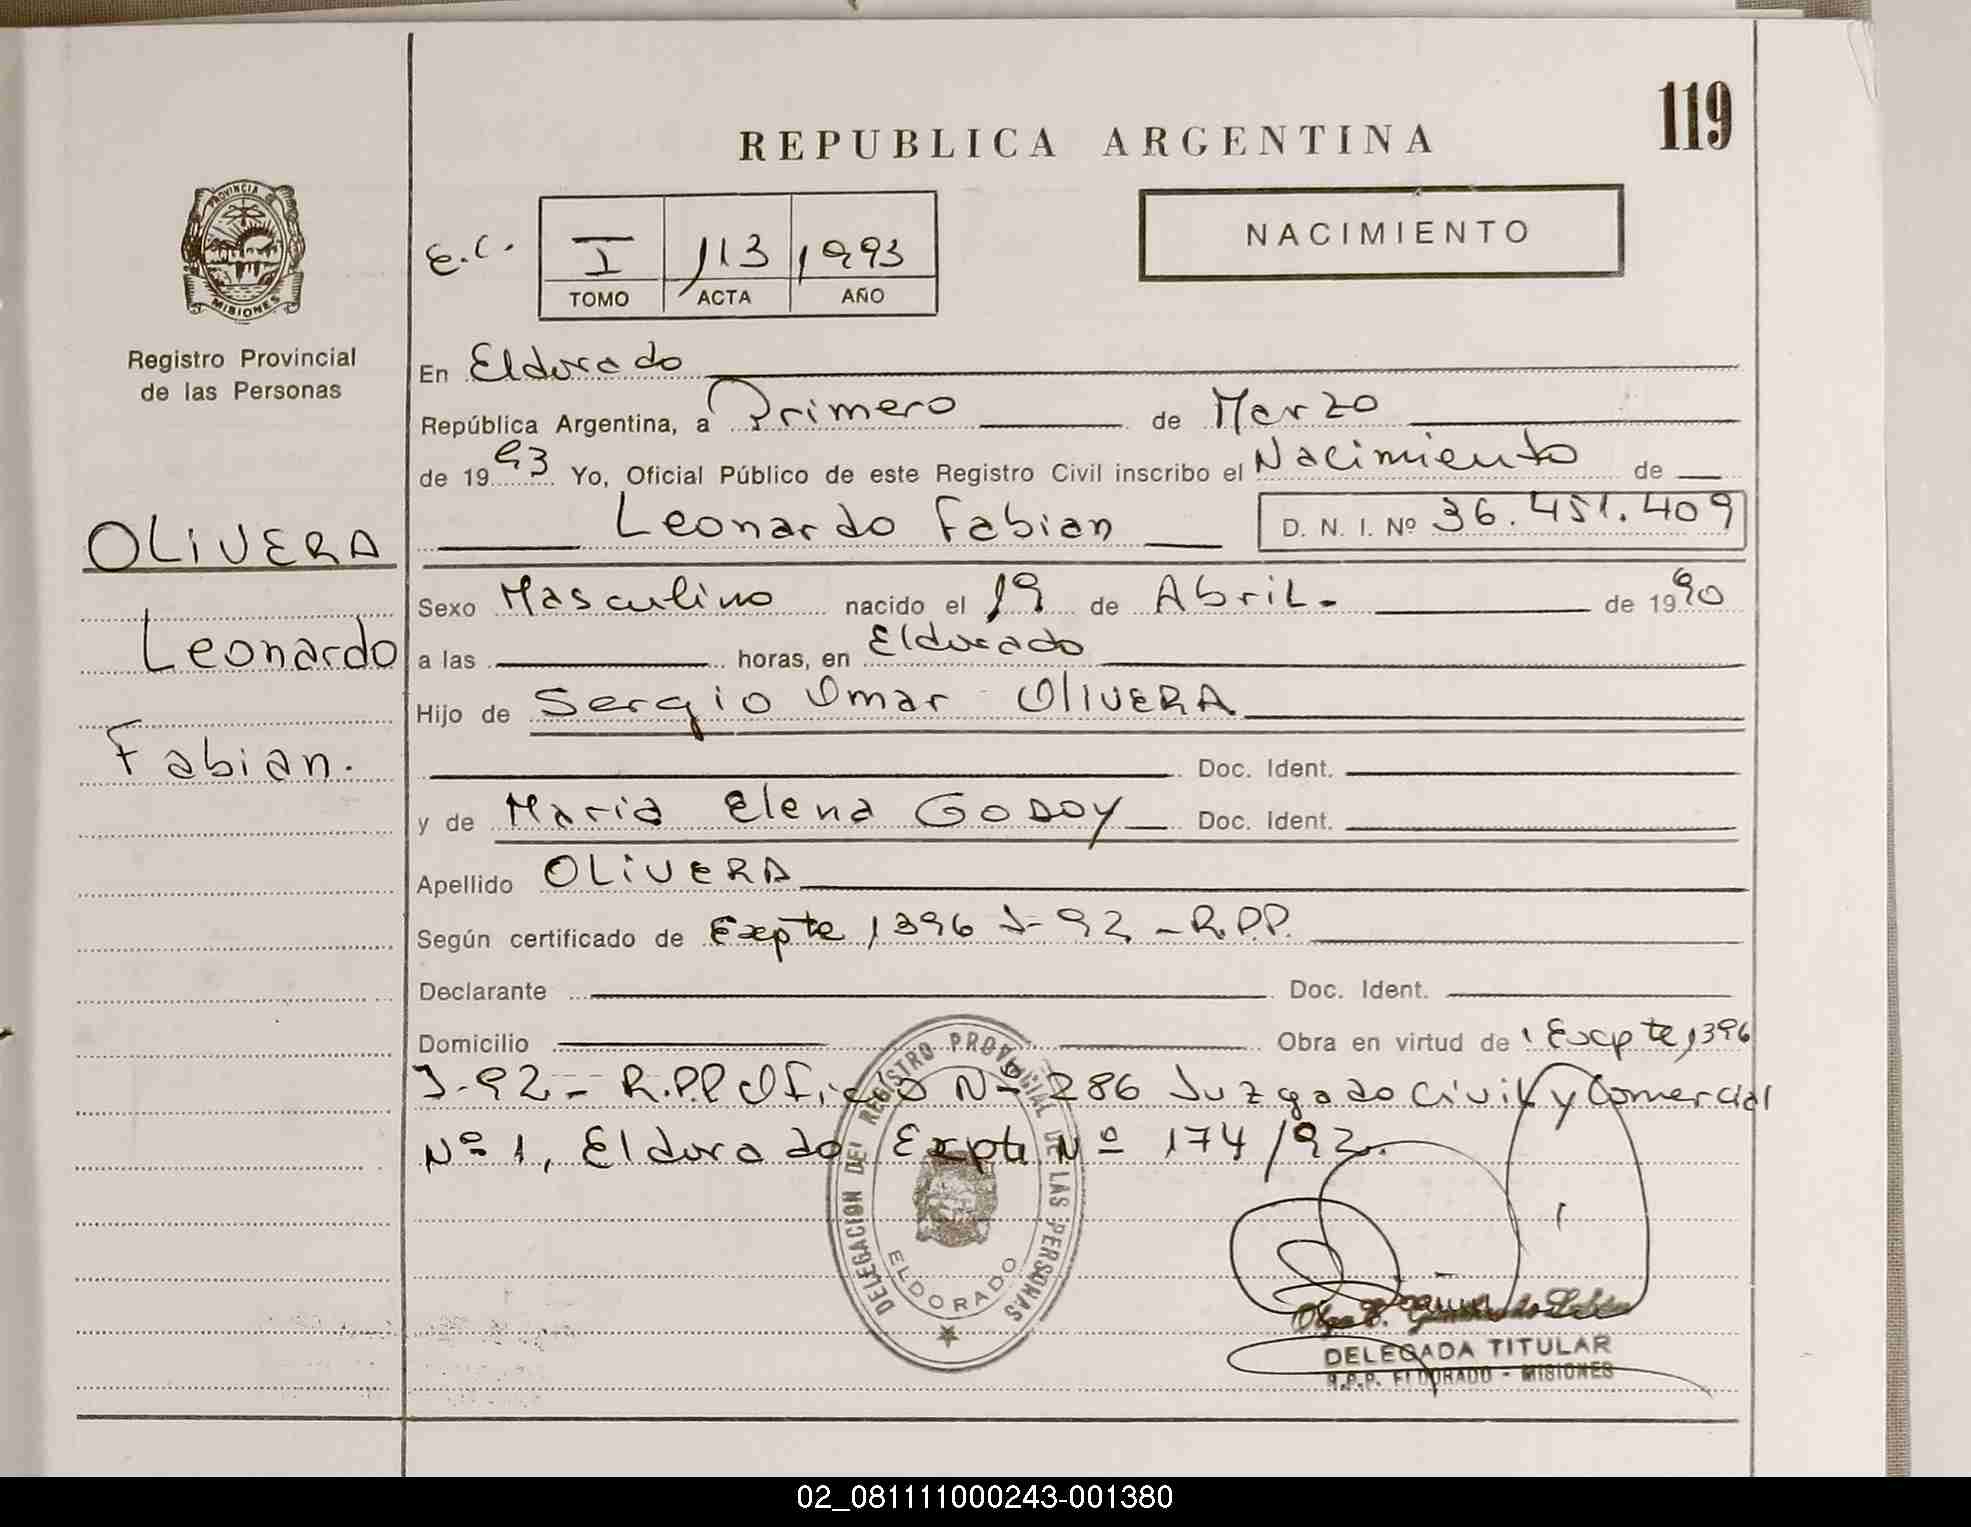 119
REPUBLICA ARGENTINA
PROVINCIA
MISIONES
Registro Provincial
de las Personas
E.C.
I 113 1993
TOMO ACTA AÑO
NACIMIENTO
OLIVERA
Leonardo
Fabian.
En Eldorado
República Argentina, a Primero de Marzo
de 1993 Yo, Oficial Público de este Registro Civil inscribo el Nacimiento de
Leonardo Fabian D. N. I. Nº 36.451.409
Sexo Masculino nacido el 19 de Abril. de 1990
a las horas, en Eldorado
Hijo de Sergio Omar OLIVERA
Doc. Ident.
y de Maria Elena GODOY Doc. Ident.
Apellido OLIVERA
Según certificado de Expte 1396 J-92 - R.P.P.
Declarante Doc. Ident.
Domicilio Obra en virtud de Expte 1396
J-92 - R.P.P Oficio Nº 286 Juzgado Civil y Comercial
Nº 1, Eldorado Expte Nº 174/92.
DELEGACION DEL REGISTRO PROVINCIAL DE LAS PERSONAS
ELDORADO
Olga
DELEGADA TITULAR
R.P.P. ELDORADO - MISIONES
02_081111000243-001380